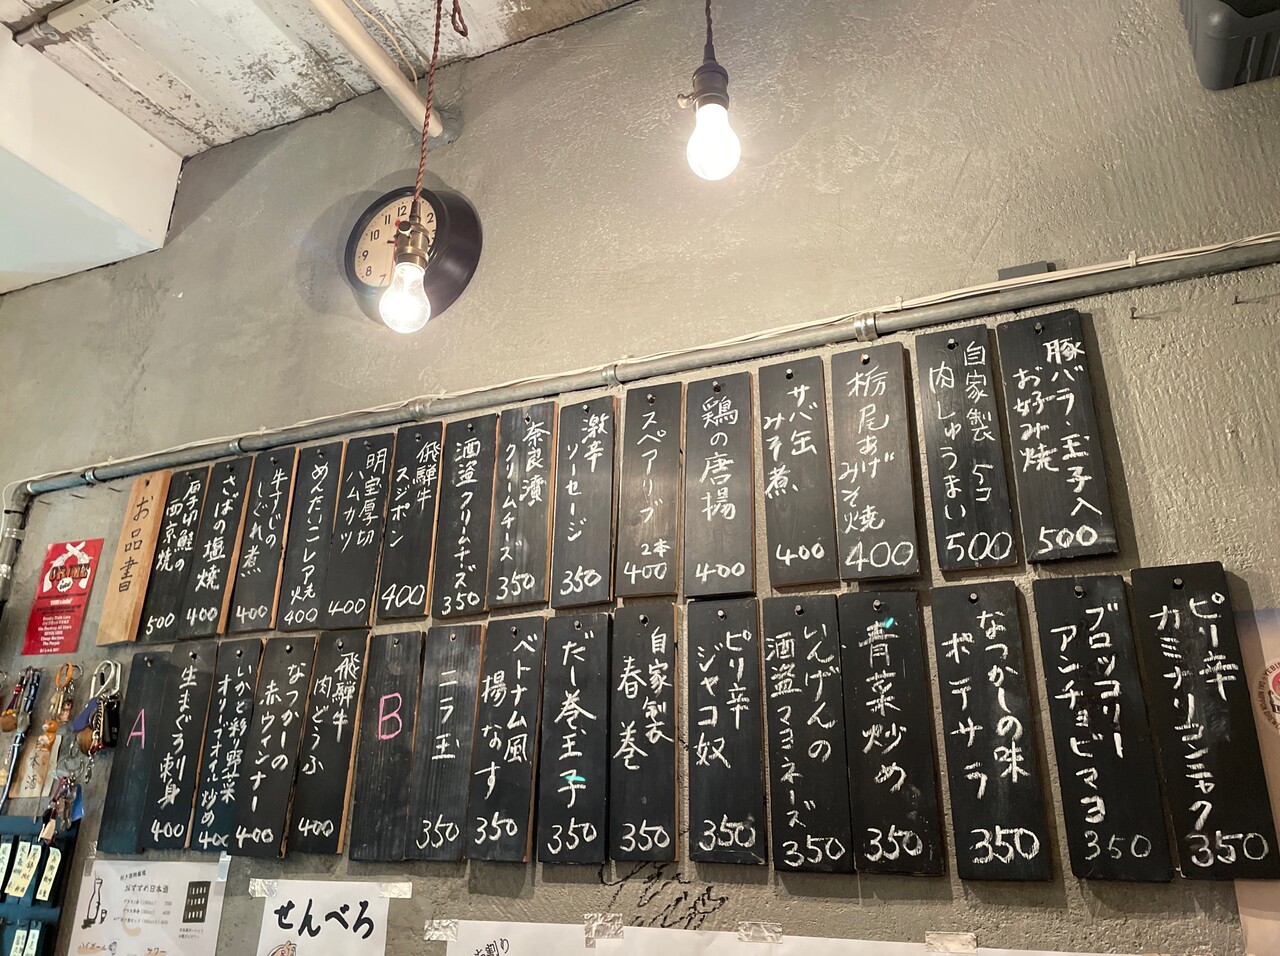 豚バラ・玉子入
お好み焼
500
自家製 5コ
肉しゅうまい
500
栃尾あげ
みそ焼
400
サバ缶
みそ煮
400
鶏の唐揚
400
スペアリブ
2本
400
激辛
ソーセージ
350
奈良漬
クリームチーズ
350
酒盗クリームチーズ
350
飛騨牛
スジポン
400
明宝厚切
ハムカツ
400
めんたいこレア焼
400
牛すじの
しぐれ煮
400
さばの塩焼
400
厚切鮭の
西京焼
500
お品書
ピリ辛
カミナリコンニャク
350
ブロッコリー
アンチョビマヨ
350
なつかしの味
ポテサラ
350
青菜炒め
350
いんげんの
酒盗マヨネーズ
350
ピリ辛
ジャコ奴
350
自家製
春巻
350
だし巻玉子
350
ベトナム風
揚なす
350
ニラ玉
350
B
飛騨牛
肉どうふ
400
なつかしの
赤ウインナー
400
いかと彩り野菜
オリーブオイル炒め
400
生まぐろ刺身
400
A
おすすめ日本酒
せんべろ
10
11
12
2
9
8
7